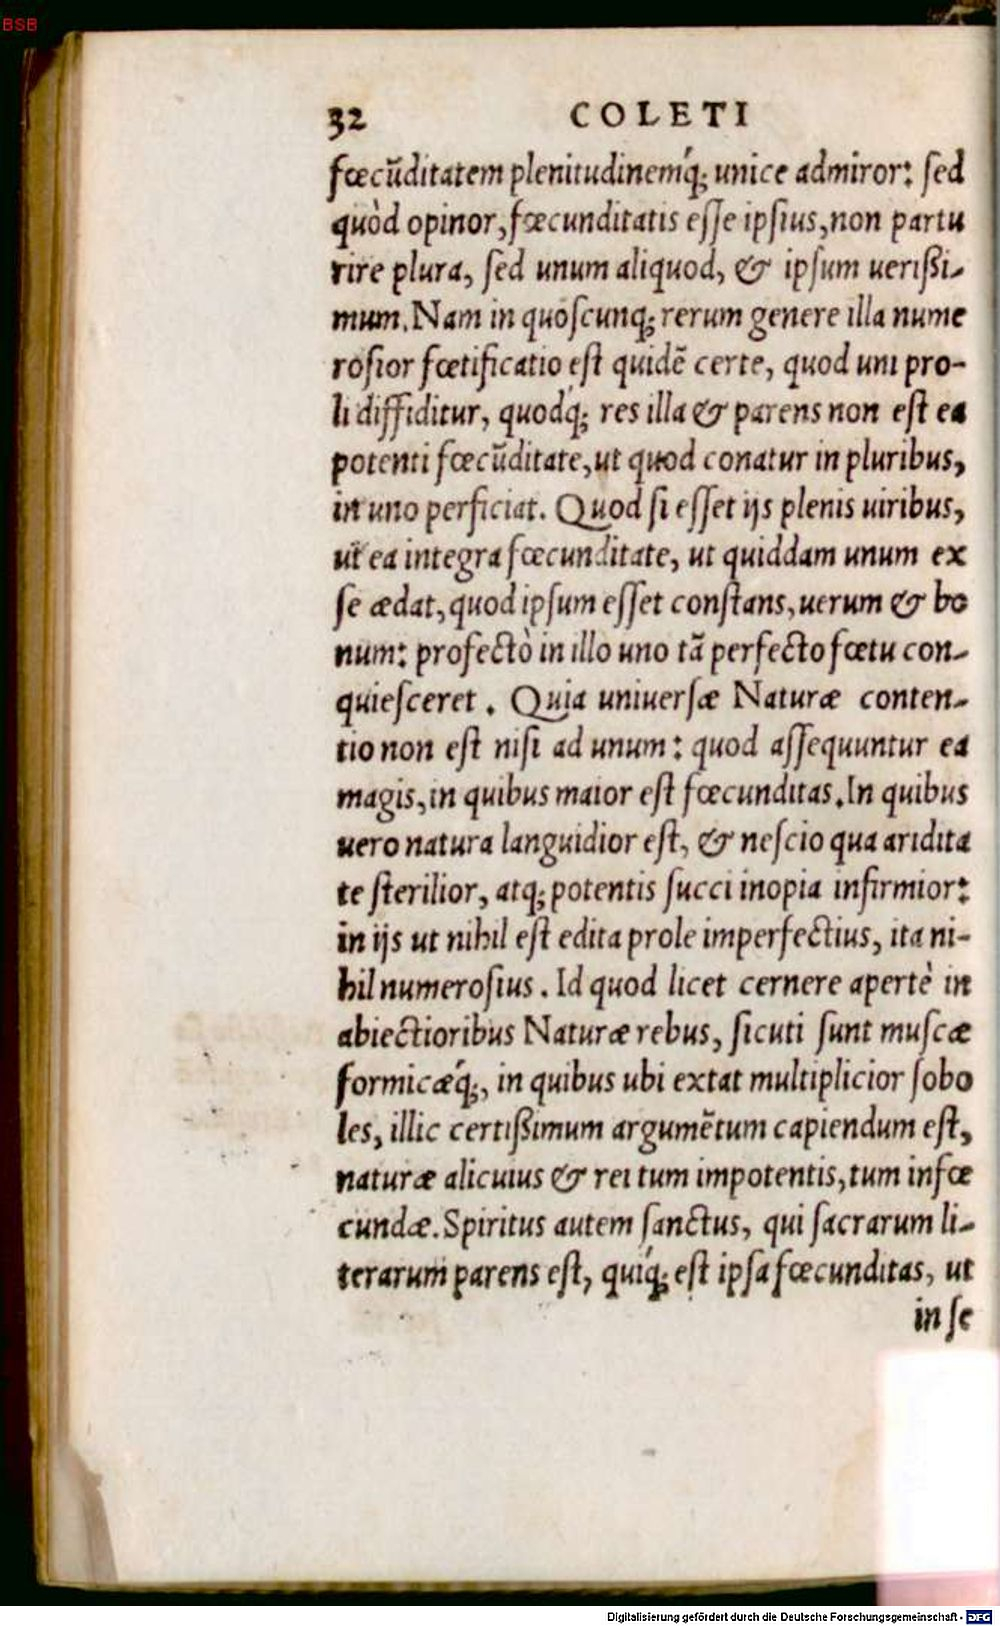 BSB
32 COLETI
fœcūditatem plenitudinemq́; unice admiror: ſed
quòd opinor, fœcunditatis eſſe ipſius, non partu
rire plura, ſed unum aliquod, & ipſum ueriſsi-
mum. Nam in quoſcunq; rerum genere illa nume
roſior fœtificatio eſt quidē certe, quod uni pro-
li diffiditur, quodq́; res illa & parens non eſt ea
potenti fœcūditate, ut quod conatur in pluribus,
in uno perficiat. Quod ſi eſſet ijs plenis uiribus,
ut ea integra fœcunditate, ut quiddam unum ex
ſe ædat, quod ipſum eſſet conſtans, uerum & bo
num: profectò in illo uno tā perfecto fœtu con-
quieſceret. Quia uniuerſæ Naturæ conten-
tio non eſt niſi ad unum: quod aſſequuntur ea
magis, in quibus maior eſt fœcunditas. In quibus
uero natura languidior eſt, & neſcio qua aridita
te ſterilior, atq; potentis ſucci inopia infirmior:
in ijs ut nihil eſt edita prole imperfectius, ita ni-
hil numeroſius. Id quod licet cernere apertè in
abiectioribus Naturæ rebus, ſicuti ſunt muſcæ
formicæq́;, in quibus ubi extat multiplicior ſobo
les, illic certiſsimum argumētum capiendum eſt,
naturæ alicuius & rei tum impotentis, tum infœ
cundæ. Spiritus autem ſanctus, qui ſacrarum li-
terarum parens eſt, quiq́; eſt ipſa fœcunditas, ut
in ſe
Digitalisierung gefördert durch die Deutsche Forschungsgemeinschaft - DFG